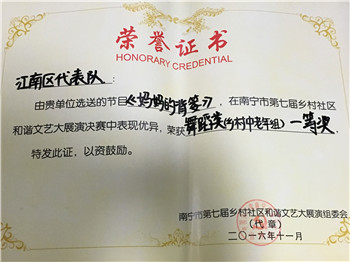 荣誉证书
HONORARY CREDENTIAL
江南区代表队：
由贵单位选送的节目《妈妈的背篓》，在南宁市第七届乡村社区
和谐文艺大展演决赛中表现优异，荣获舞蹈类(乡村中老年组)一等奖，
特发此证，以资鼓励。
南宁市第七届乡村社区和谐文艺大展演组委会
（代章）
二〇一六年十一月